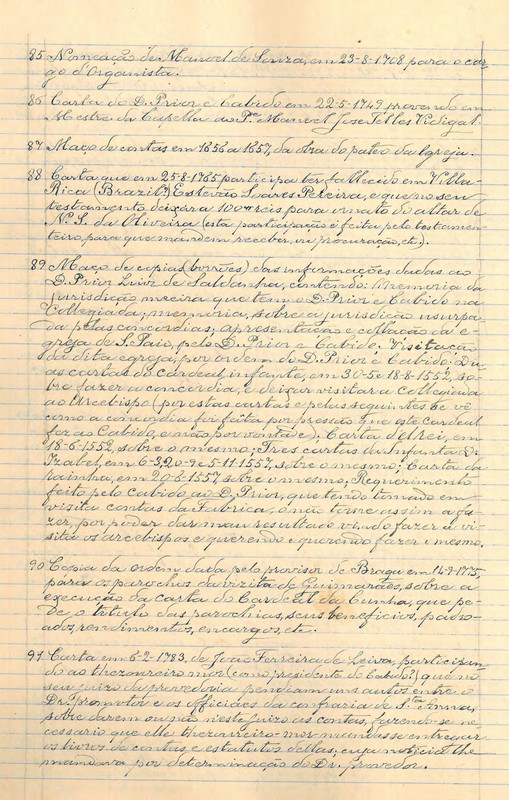 85 Nomeação de Manoel de Souza, em 23-8-1768 para o car-
go d'Organista.
86 Carta do D. Prior e Cabido em 22-5-1749 provendo em
Mestre da Capella ao Pe Manoel Jose Telles Vidigal.
87 Maço de contas em 1656 a 1657, da obra do pateo da Igreja.
88 Carta que em 25-8-1765 participa ter fallecido em Villa
Rica (Brazil?) Estevão Soares Pereira, e que no seu
testamento deixara 100$000 reis para ornato do altar de
N. S. da Oliveira (esta participação é feita pelo testamen-
teiro, para que mandem receber, ou procuração, etc.).
89 Maço de copias (borrões) das informações dadas ao
D. Prior de Saldanha, contendo: Memoria da
jurisdição que tem o D. Prior e Cabido na
Collegiada; memoria, sobre a jurisdição usurpa-
da pelas concordias; apresentação e collação da e-
greja de S. Paio, pelo D. Prior e Cabido; Visitação
da dita egreja, por ordem do D. Prior e Cabido; Du-
as cartas do cardeal infante, em 30-5 e 18-8-1552, so-
bre fazer a concordia, e deixar visitar a Collegiada
ao Arcebispo (por estas cartas e pelas seguintes se vê
como a concordia foi feita por pressão que este cardeal
fez ao Cabido, e não por vontade); Carta d'elrei, em
18-6-1552, sobre o mesmo; Tres cartas da Infanta D.
Izabel, em 6-3, 20-9 e 5-11-1557, sobre o mesmo; Carta da
rainha, em 20-6-1557 sobre o mesmo; Requerimento
feito pelo cabido ao D. Prior, que tendo tomado em
visita contas da Fabrica, o não torne assim a fa-
zer, por poder dar mau resultado vindo fazer a vi-
sita os arcebispos e querendo e querendo fazer o mesmo.
90 Copia da ordem dada pelo provisor de Braga em 14-9-1775,
para os parochos da vizita de Guimarães, sobre a
execução da carta do Cardeal da Cunha, que pe-
de, o titulo das parochias, seus beneficios, padro-
ados, rendimentos, encargos, etc.
91 Carta em 6-2-1783, de João Ferreira de Leiva, participan-
do ao thezoureiro mor (como presidente do Cabido?) que no
seu juizo da provedoria pendeam uns autos entre o
Dr. promotor e os officiaes da confraria de S.ta Anna,
sobre darem ou não n'este juizo as contas, fazendo-se ne-
cessario que elle thezoureiro-mor mandasse entregar
os livros de contas e estatutos d'ellas, cuja noticia lhe
mandava por determinação do Dr. provedor.